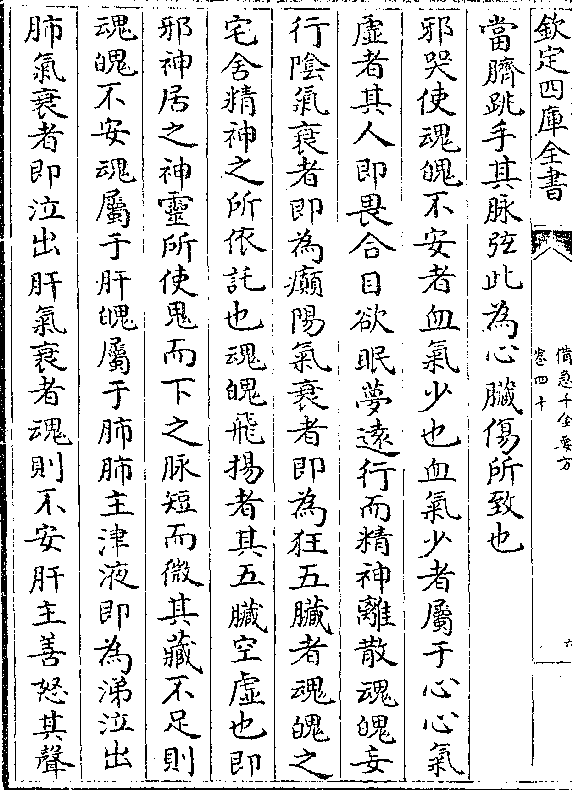 欽定四庫全書
備急千金要方
卷四十
六
當臍跳手其脉弦此為心臟傷所致也
邪哭使魂魄不安者血氣少也血氣少者屬于心心氣
虛者其人即畏合目欲眠夢遠行而精神離散魂魄妄
行陰氣衰者即為癲陽氣衰者即為狂五臟者魂魄之
宅舍精神之所依託也魂魄飛揚者其五臟空虛也即
邪神居之神靈所使鬼而下之脉短而微其藏不足則
魂魄不安魂屬于肝魄屬于肺肺主津液即為涕泣出
肺氣衰者即泣出肝氣衰者魂則不安肝主善怒其聲